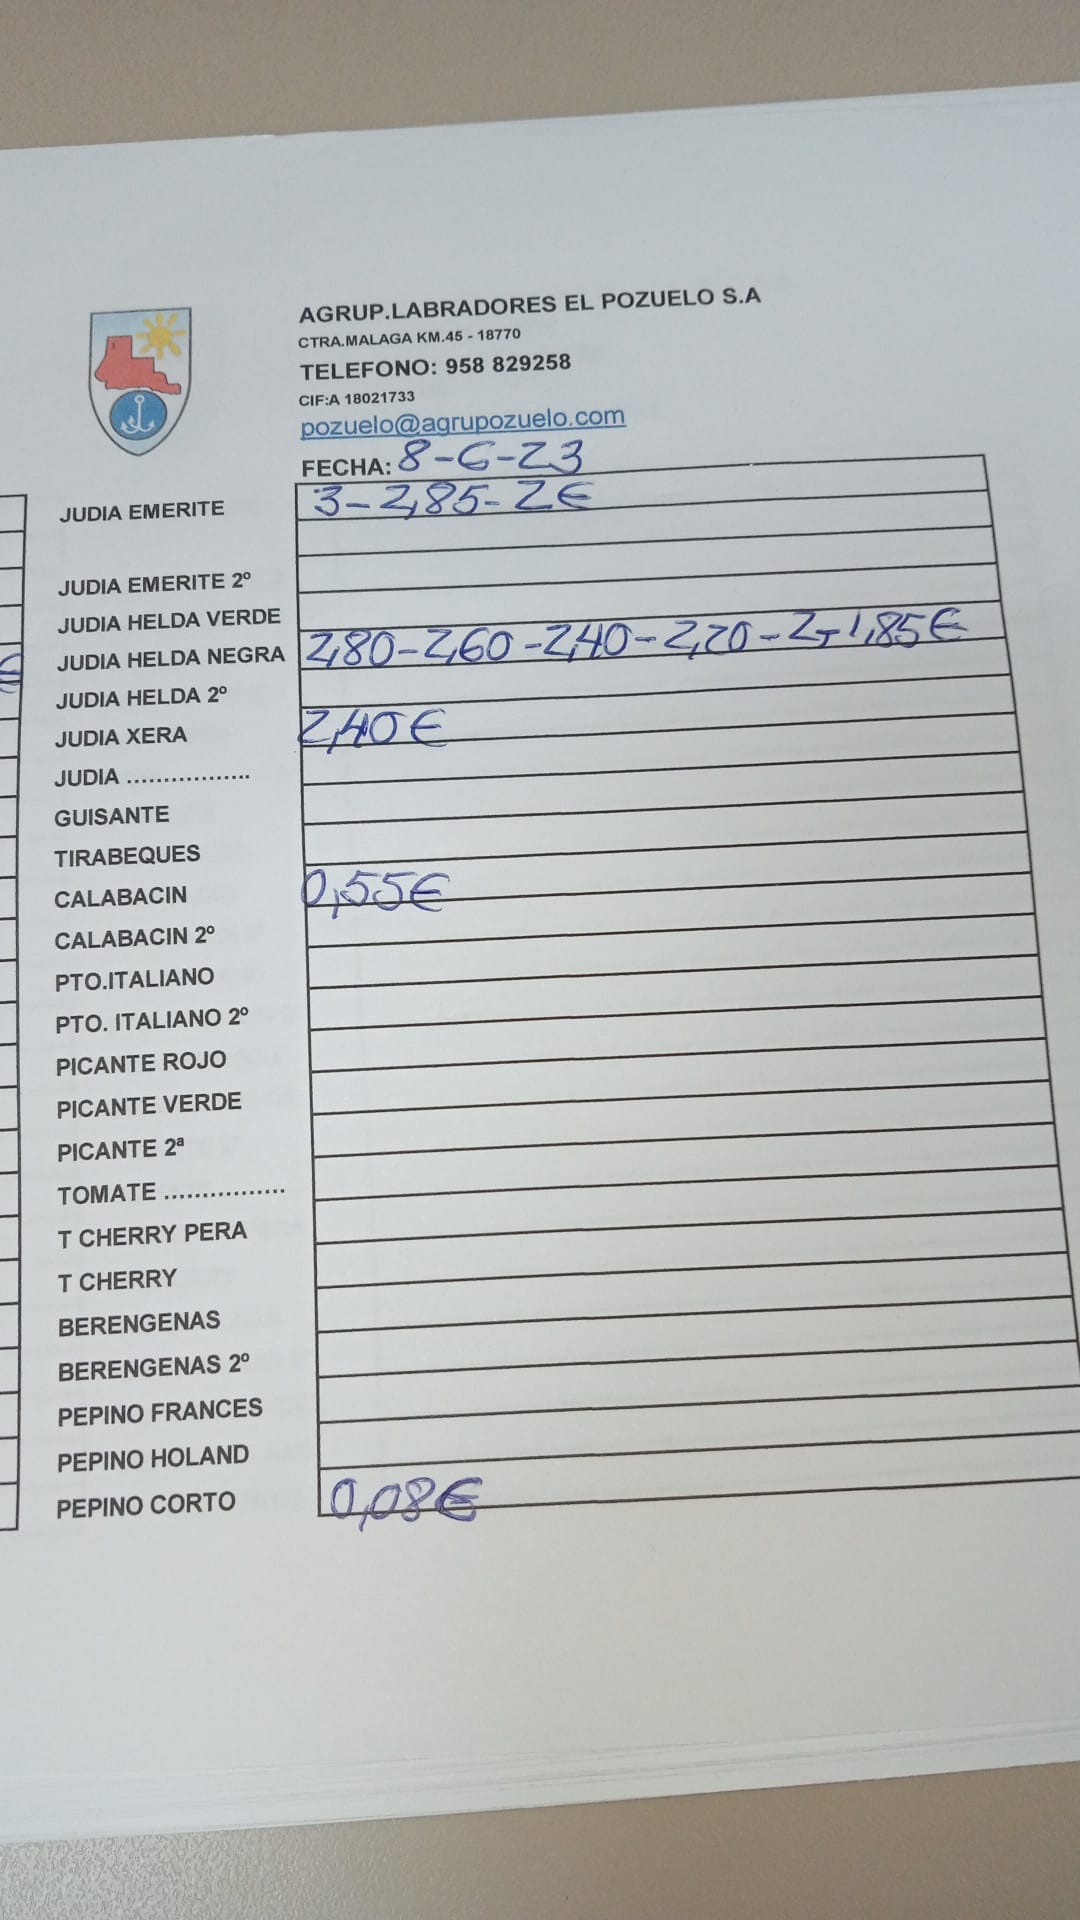 AGRUP.LABRADORES EL POZUELO S.A
CTRA.MALAGA KM.45 - 18770
TELEFONO: 958 829258
CIF:A 18021733
pozuelo@agrupozuelo.com
FECHA: 8-6-23
JUDIA EMERITE 3-2,85-2€
JUDIA EMERITE 2º
JUDIA HELDA VERDE
JUDIA HELDA NEGRA 2,80-2,60-2,40-2,20-2-1,85€
JUDIA HELDA 2º
JUDIA XERA 2,40€
JUDIA .................
GUISANTE
TIRABEQUES
CALABACIN 0,55€
CALABACIN 2º
PTO.ITALIANO
PTO. ITALIANO 2º
PICANTE ROJO
PICANTE VERDE
PICANTE 2ª
TOMATE ................
T CHERRY PERA
T CHERRY
BERENGENAS
BERENGENAS 2º
PEPINO FRANCES
PEPINO HOLAND
PEPINO CORTO 0,08€